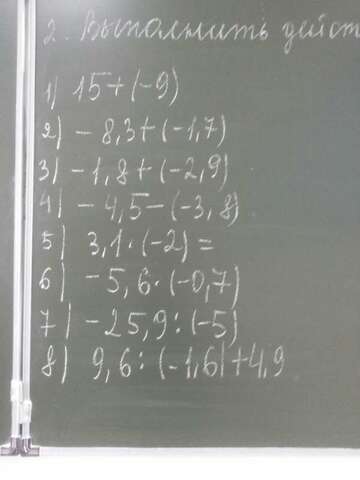 2. Выполнить дейст
1) 15+(-9)
2) -8,3+(-1,7)
3) -1,8+(-2,9)
4) -4,5-(-3,8)
5) 3,1·(-2)=
6) -5,6·(-0,7)
7) -25,9:(-5)
8) 9,6:(-1,6)+4,9